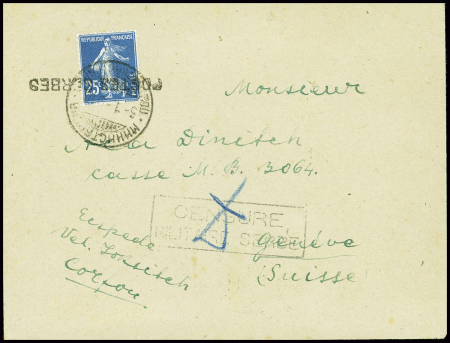 REPUBLIQUE FRANÇAISE
25
POSTES SERBES
Monsieur
Dinitch
casse M. B. 3064.
CENSURE
MILITAIRE SERBE
Genève
(Suisse)
Expede
Vel.
Corfou